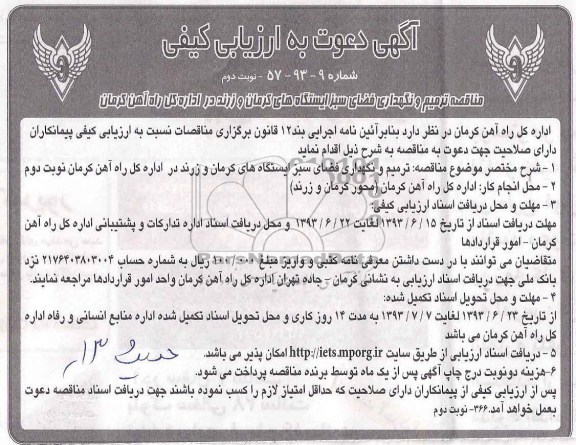 آگهی دعوت به ارزیابی کیفی
شماره ۹ - ۹۳ - ۵۷ - نوبت دوم
مناقصه ترمیم و نگهداری فضای سبز ایستگاه های کرمان و زرند در اداره کل راه آهن کرمان
اداره کل راه آهن کرمان در نظر دارد بنابرآئین نامه اجرایی بند۱۲ قانون برگزاری مناقصات نسبت به ارزیابی کیفی پیمانکاران
دارای صلاحیت جهت دعوت به مناقصه به شرح ذیل اقدام نماید
۱ - شرح مختصر موضوع مناقصه: ترمیم و نگهداری فضای سبز ایستگاه های کرمان و زرند در اداره کل راه آهن کرمان نوبت دوم
۲ - محل انجام کار: اداره کل راه آهن کرمان (محور کرمان و زرند)
۳ - مهلت و محل دریافت اسناد ارزیابی کیفی:
مهلت دریافت اسناد از تاریخ ۱۵ / ۶ / ۱۳۹۳ لغایت ۲۲ / ۶ / ۱۳۹۳ و محل دریافت اسناد اداره تدارکات و پشتیبانی اداره کل راه آهن
کرمان - امور قراردادها
متقاضیان می توانند با در دست داشتن معرفی نامه کتبی و واریز مبلغ ریال به شماره حساب ۲۱۷۶۴۰۳۸۰۳۰۰۴ نزد
بانک ملی جهت دریافت اسناد ارزیابی به نشانی کرمان - جاده تهران اداره کل راه آهن کرمان واحد امور قراردادها مراجعه نمایند.
۴ - مهلت و محل تحویل اسناد تکمیل شده:
از تاریخ ۲۳ / ۶ / ۱۳۹۳ لغایت ۷ / ۷ / ۱۳۹۳ به مدت ۱۴ روز کاری و محل تحویل اسناد تکمیل شده اداره منابع انسانی و رفاه اداره
کل راه آهن کرمان می باشد
۵ - دریافت اسناد ارزیابی از طریق سایت http://iets.mporg.ir امکان پذیر می باشد.
۶-هزینه دونوبت درج چاپ آگهی پس از یک ماه توسط برنده مناقصه پرداخت می شود.
پس از ارزیابی کیفی از پیمانکاران دارای صلاحیت که حداقل امتیاز لازم را کسب نموده باشند جهت دریافت اسناد مناقصه دعوت
بعمل خواهد آمد.۳۶۶- نوبت دوم